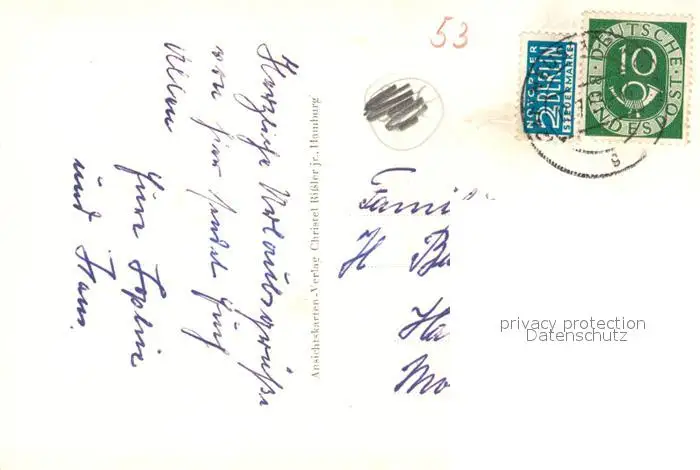 Herzliche Urlaubsgrüße
von hier sendet Euch
allen
Eure Sophie
und Hans.
Ansichtskarten-Verlag Christel Rißler jr., Hamburg
53
NOTOPFER
2 BERLIN
STEUERMARKE
DEUTSCHE
10
BUNDESPOST
8
Fami
H B
Ha
Mo
privacy protection
Datenschutz